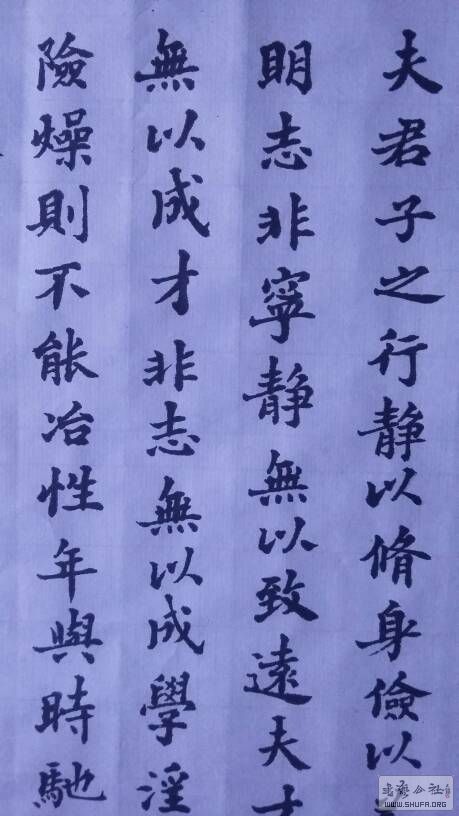 夫君子之行静以脩身儉以
明志非寧静無以致遠夫
無以成才非志無以成學淫
險燥則不能冶性年與時馳
WWW.SHUFA.ORG